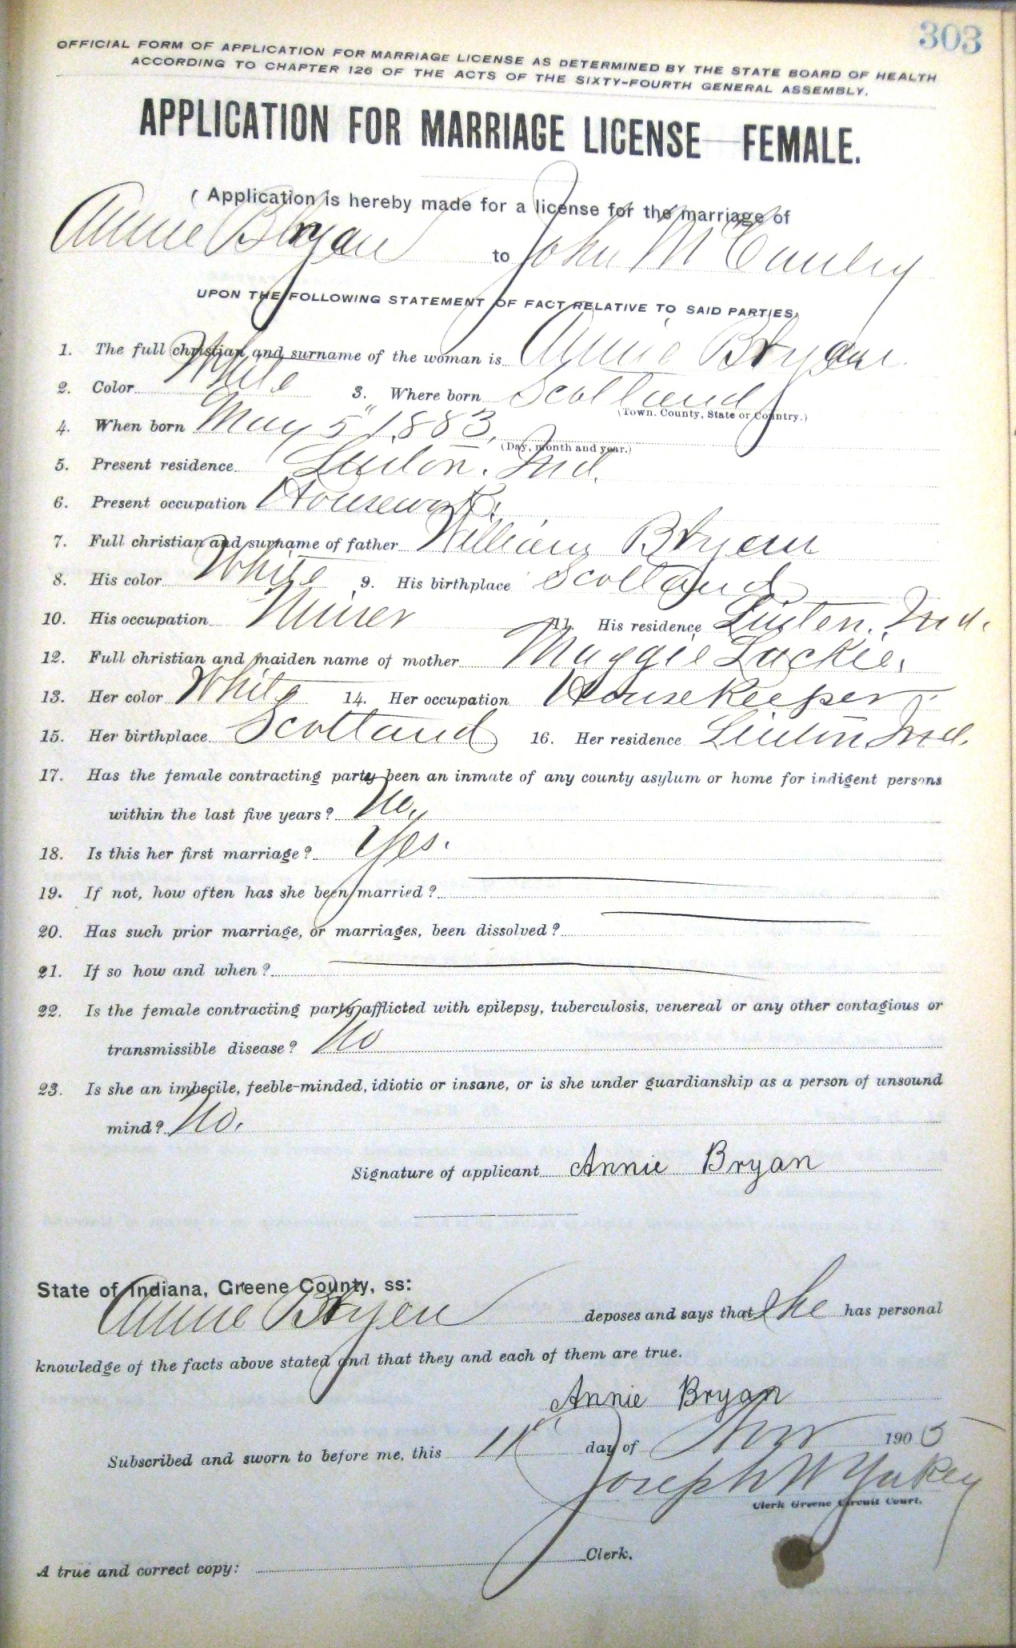 303
OFFICIAL FORM OF APPLICATION FOR MARRIAGE LICENSE AS DETERMINED BY THE STATE BOARD OF HEALTH
ACCORDING TO CHAPTER 126 OF THE ACTS OF THE SIXTY-FOURTH GENERAL ASSEMBLY.
APPLICATION FOR MARRIAGE LICENSE FEMALE.
Application is hereby made for a license for the marriage of
Annie Bryan to John McCauley
UPON THE FOLLOWING STATEMENT OF FACT RELATIVE TO SAID PARTIES,
1. The full christian and surname of the woman is Annie Bryan
2. Color White 3. Where born Scotland
(Town. County, State or Country.)
4. When born May 5" 1883.
(Day, month and year.)
5. Present residence. Linton. Ind.
6. Present occupation Housework.
7. Full christian and surname of father William Bryan
8. His color White 9. His birthplace Scotland
10. His occupation Miner 11. His residence Linton. Ind.
12. Full christian and maiden name of mother Maggie Lackie.
13. Her color White 14. Her occupation Housekeeper.
15. Her birthplace. Scotland 16. Her residence Linton Ind.
17. Has the female contracting party been an inmate of any county asylum or home for indigent persons
within the last five years? No.
18. Is this her first marriage? Yes.
19. If not, how often has she been married?
20. Has such prior marriage, or marriages, been dissolved?
21. If so how and when?
22. Is the female contracting party afflicted with epilepsy, tuberculosis, venereal or any other contagious or
transmissible disease? No
23. Is she an imbecile, feeble-minded, idiotic or insane, or is she under guardianship as a person of unsound
mind? No.
Signature of applicant Annie Bryan
State of Indiana, Greene County, ss:
Annie Bryan deposes and says that she has personal
knowledge of the facts above stated and that they and each of them are true.
Annie Bryan
Subscribed and sworn to before me, this 11" day of Nov 1905
Joseph W Yakey
Clerk Greene Circuit Court.
A true and correct copy: Clerk.